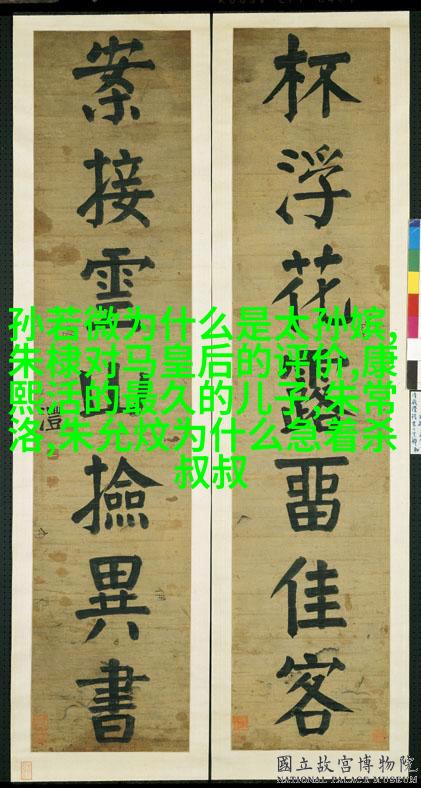 杯浮花露畱佳客
案接雲山撿異書
孙若微为什么是太孙嫔,
朱棣对马皇后的评价,康
熙活的最久的儿子,朱常
洛,朱允炆为什么急着杀
叔叔
國立故宮博物院
NATIONAL PALACE MUSEUM